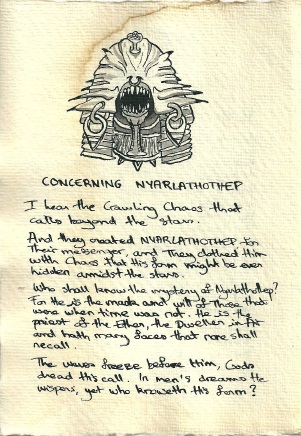 CONCERNING NYARLATHOTHEP
I hear the Crawling Chaos that
calls beyond the stars.
And they created NYARLATHOTHEP for
Their messenger, and They clothed Him
with Chaos that His form might be ever
hidden amidst the stars.
Who shall know the mystery of Nyarlathothep?
For He is the mask and will of Those that
were when time was not. He is the
priest of the Ether, the Dweller in Air
and hath many faces that none shall
recall.
The waves freeze before Him, Gods
dread His call. In men's dreams He
wispers, yet who knoweth His form?